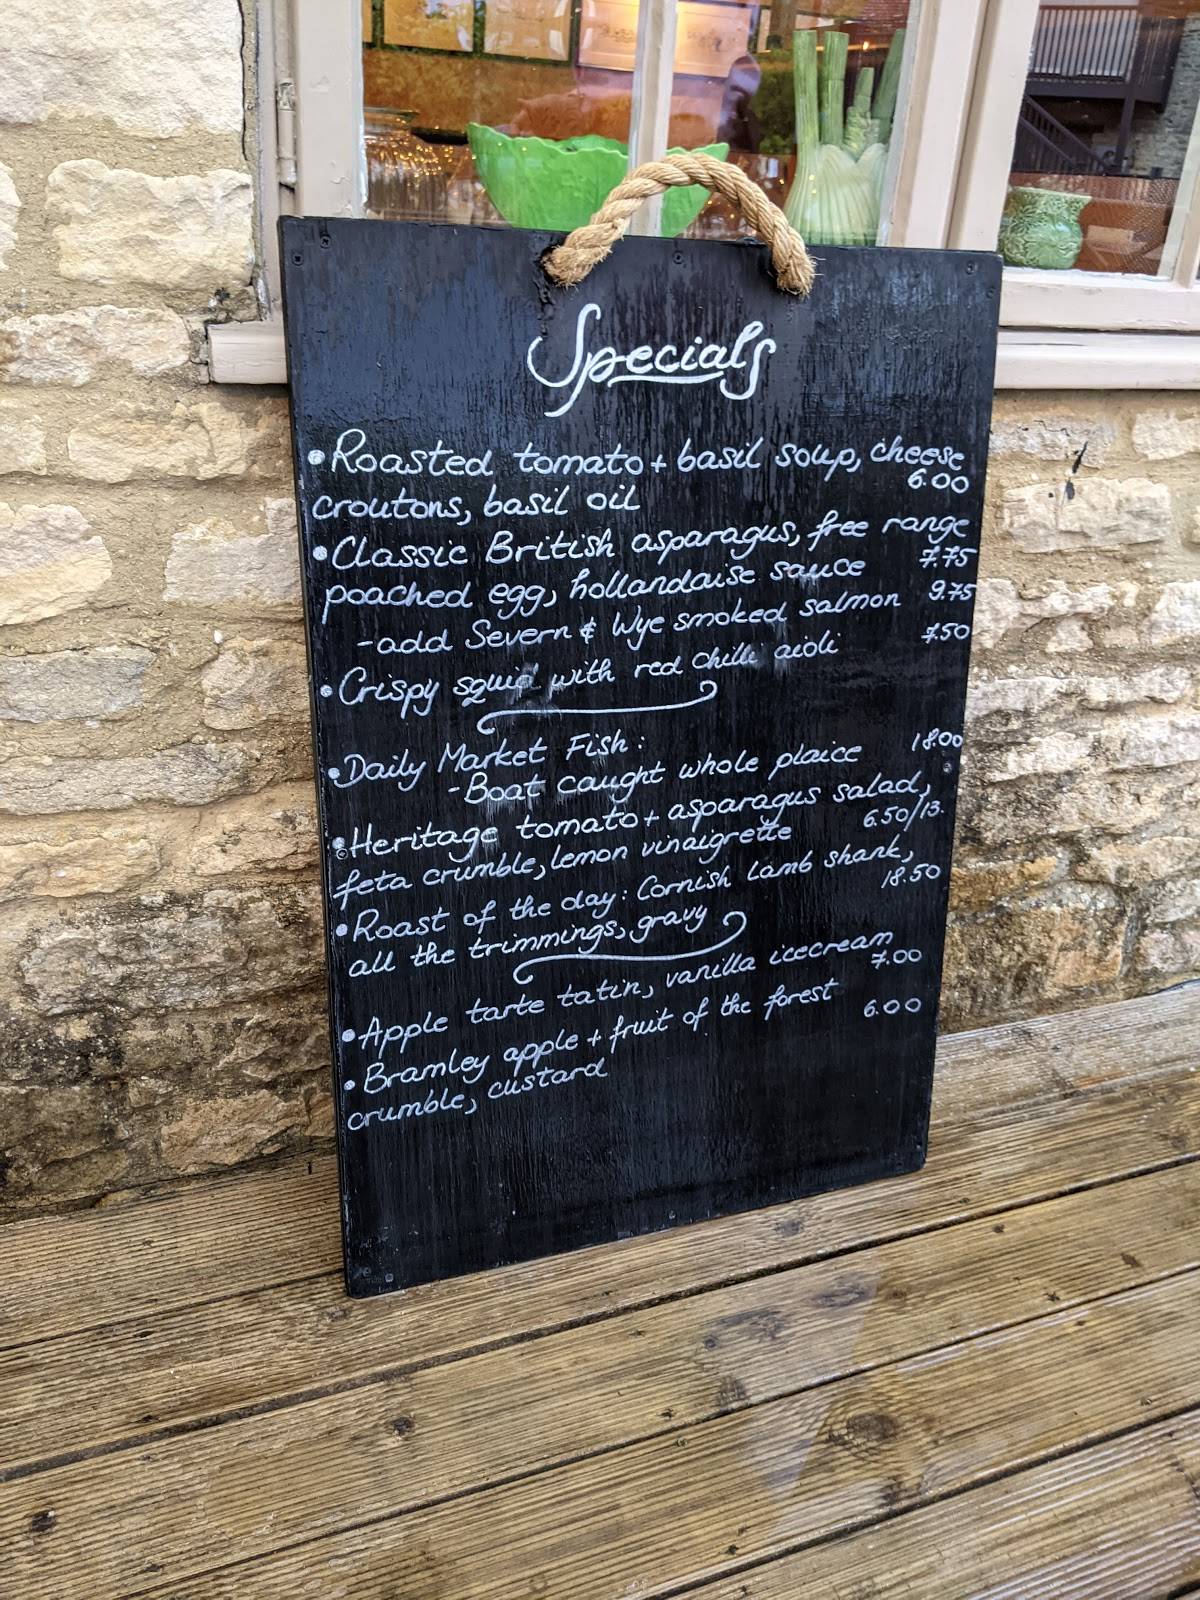 Specials
• Roasted tomato + basil soup, cheese
croutons, basil oil 6.00
• Classic British asparagus, free range
poached egg, hollandaise sauce 7.75
- add Severn & Wye smoked salmon 9.75
• Crispy squid with red chilli aioli 7.50
• Daily Market Fish:
- Boat caught whole plaice 18.00
• Heritage tomato + asparagus salad,
feta crumble, lemon vinaigrette 6.50/13.
• Roast of the day: Cornish lamb shank,
all the trimmings, gravy 18.50
• Apple tarte tatin, vanilla icecream
7.00
• Bramley apple + fruit of the forest
crumble, custard 6.00